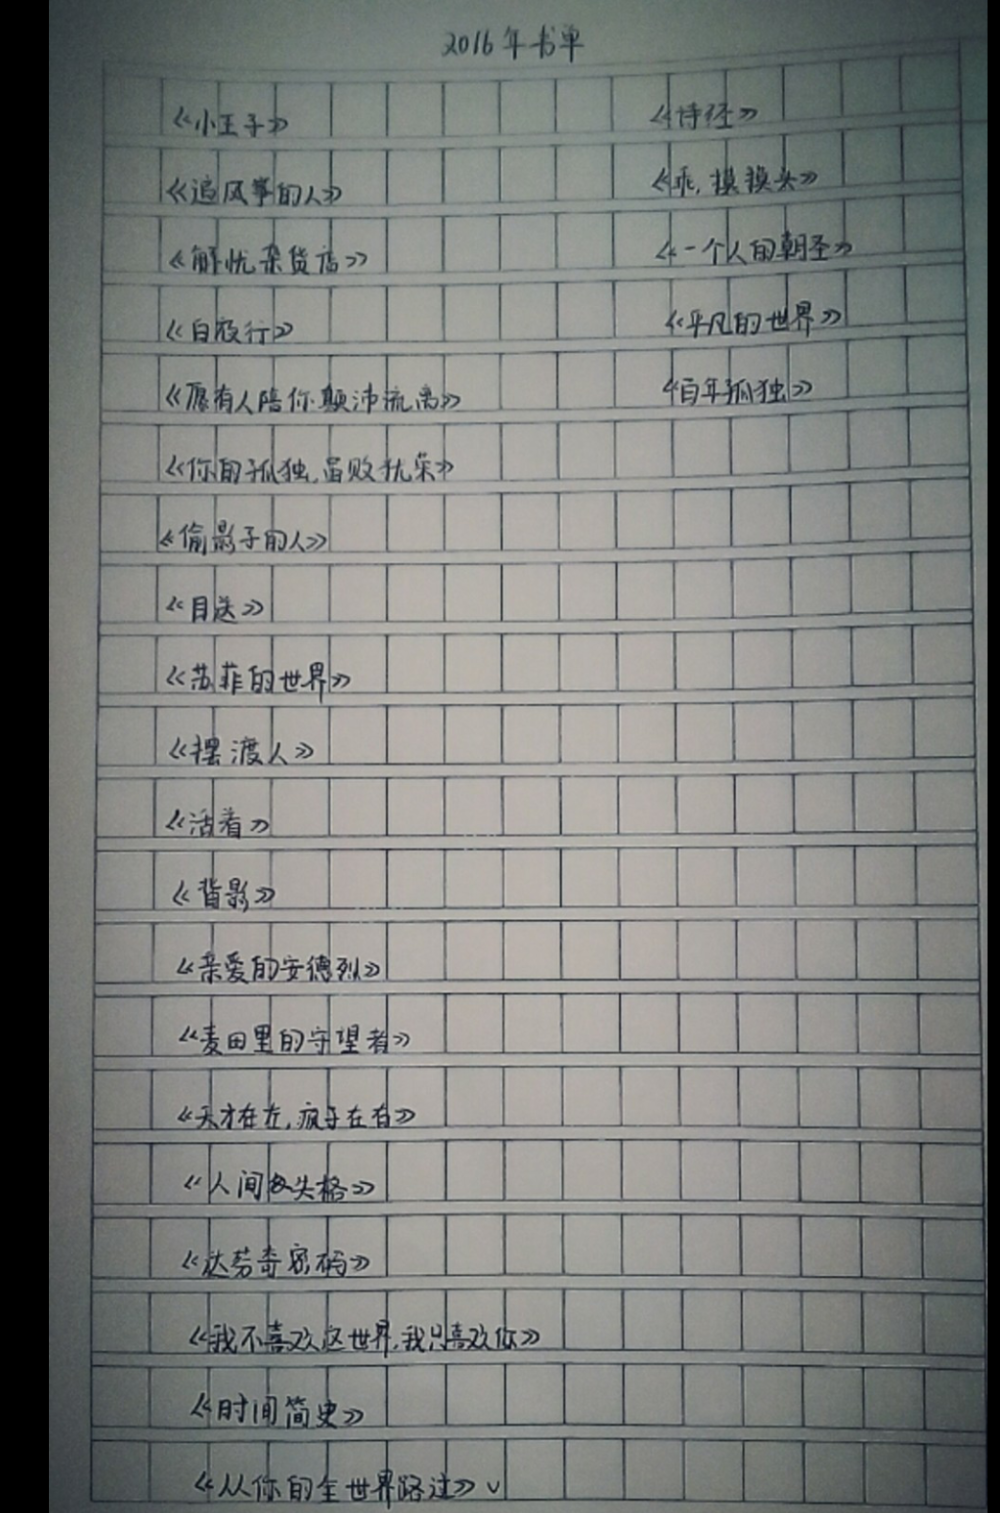 2016年书单
《小王子》
《追风筝的人》
《解忧杂货店》
《白夜行》
《愿有人陪你颠沛流离》
《你的孤独,虽败犹荣》
《偷影子的人》
《目送》
《苏菲的世界》
《摆渡人》
《活着》
《背影》
《亲爱的安德烈》
《麦田里的守望者》
《天才在左,疯子在右》
《人间失格》
《达芬奇密码》
《我不喜欢这世界,我只喜欢你》
《时间简史》
《从你的全世界路过》√
《诗经》
《乖,摸摸头》
《一个人的朝圣》
《平凡的世界》
《百年孤独》